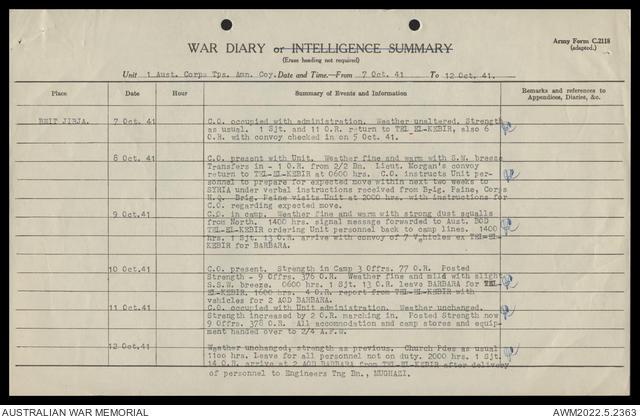 Army Form C.2118
(adapted.)
WAR DIARY or INTELLIGENCE SUMMARY
(Erase heading not required)
Unit 1 Aust. Corps Tps. Amn. Coy. Date and Time.—From 7 Oct. 41 To 12 Oct. 41.
Place Date Hour Summary of Events and Information Remarks and references to Appendices, Diaries, &c.
BEIT JIRJA. 7 Oct. 41 C.O. occupied with administration. Weather unaltered. Strength
as usual. 1 Sjt. and 11 O.R. return to TEL EL-KEBIR, also 6
O.R. with convoy checked in on 5 Oct. 41.
8 Oct. 41 C.O. present with Unit. Weather fine and warm with S.W. breeze
Transfers in - 1 O.R. from 2/2 Bn. Lieut. Morgan's convoy
return to TEL-EL-KEBIR at 0600 hrs. C.O. instructs Unit per-
sonnel to prepare for expected move within next two weeks to
SYRIA under verbal instructions received from Brig. Paine, Corps
H.Q. Brig. Paine visits Unit at 2000 hrs. with instructions for
C.O. regarding expected move.
9 Oct.41 C.O. in camp. Weather fine and warm with strong dust squalls
from North. 1400 hrs. signal message forwarded to Aust. BOD
TEL-EL-KEBIR ordering Unit personnel back to camp lines. 1400
hrs. 1 Sjt. 13 O.R. arrive with convoy of 7 Vehicles ex TEL-EL-
KEBIR for BARBARA.
10 Oct.41 C.O. present. Strength in Camp 3 Offrs. 77 O.R. Posted
Strength - 9 Offrs. 376 O.R. Weather fine and mild with slight
S.S.W. breeze. 0600 hrs. 1 Sjt. 13 O.R. leave BARBARA for TEL-
EL-KEBIR. 1600 hrs. 4 O.R. report from TEL-EL-KEBIR with
vehicles for 2 AOD BARBARA.
11 Oct.41 C.O. occupied with Unit administration. Weather unchanged.
Strength increased by 2 O.R. marching in. Posted Strength now
9 Offrs. 378 O.R. All accommodation and camp stores and equip-
ment handed over to 2/4 A.F.W.
12 Oct.41 Weather unchanged, strength as previous. Church Pdes as usual
11oo hrs. Leave for all personnel not on duty. 2000 hrs. 1 Sjt.
14 O.R. arrive at 2 AOD BARBARA from TEL-EL-KEBIR after delivery
of personnel to Engineers Tng Bn., MUGHAZI.
AUSTRALIAN WAR MEMORIAL
AWM2022.5.2363